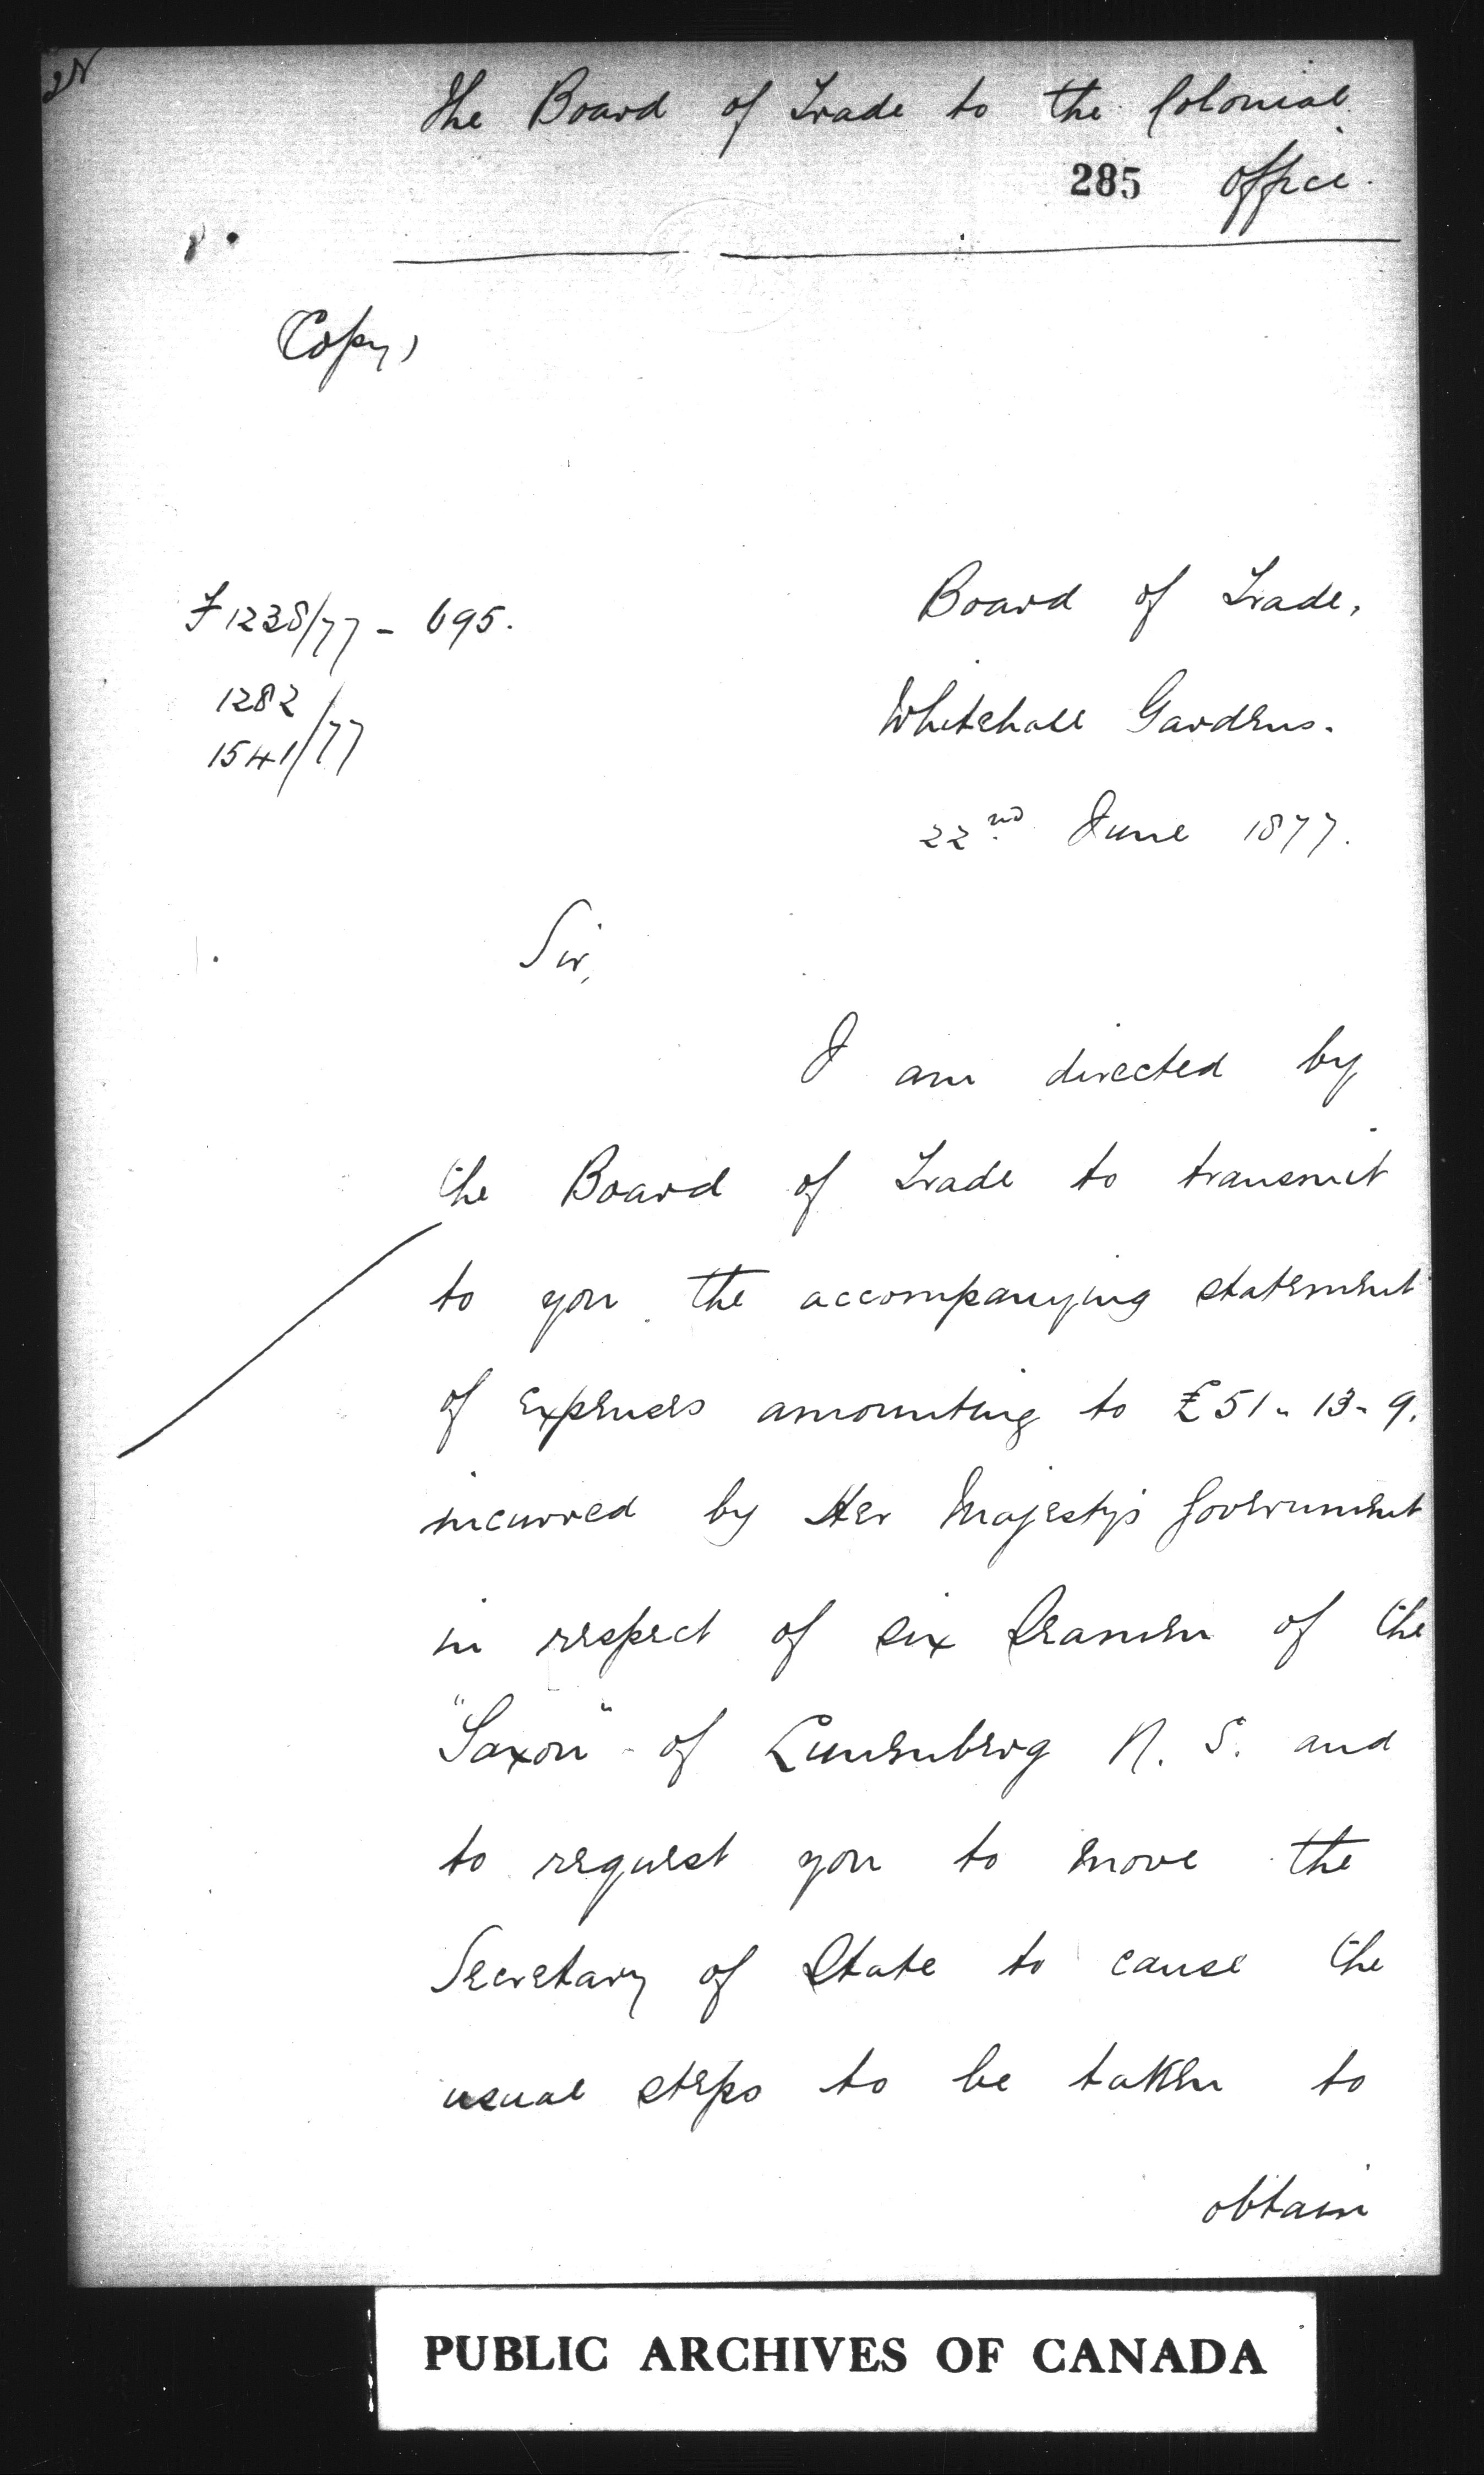 The Board of Trade to the Colonial
285 Office.
(Copy)
F 1238/77 - 695.
1282
1541/77
Board of Trade,
Whitehall Gardens.
22nd June 1877.
Sir,
I am directed by
the Board of Trade to transmit
to you the accompanying statement
of expenses amounting to £51-13-9.
incurred by Her Majesty's Government
in respect of six Seamen of the
"Saxon" of Lunenberg N. S. and
to request you to move the
Secretary of State to cause the
usual steps to be taken to
obtain
PUBLIC ARCHIVES OF CANADA